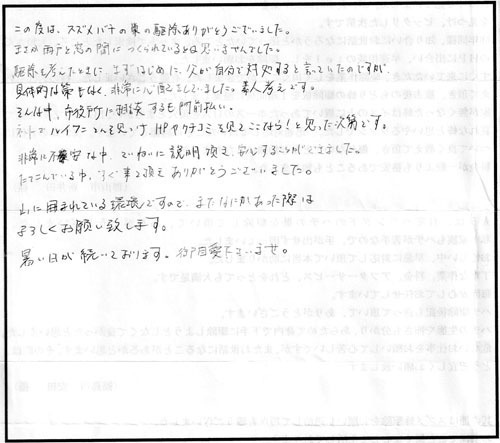 この度は、スズメバチの巣の駆除ありがとうございました。
まさか雨戸と窓の間につくられているとは思いませんでした。
駆除を考えたときに、まずはじめに、父が自分で対処すると言っていたのですが、
具体的な策もなく、非常に心配をしてました。素人考えです。
そんな中、市役所に相談するも門前払い。
ネットでハイフンさんを見つけ、HPやクチコミを見てここなら!と思った次第です。
非常に不安な中、ていねいに説明頂き、安心することができました。
たてこんでいる中、すぐ来て頂きありがとうございました。
山に囲まれている環境ですので、またなにかあった際は
よろしくお願い致します。
暑い日が続いております。御自愛下さいませ。